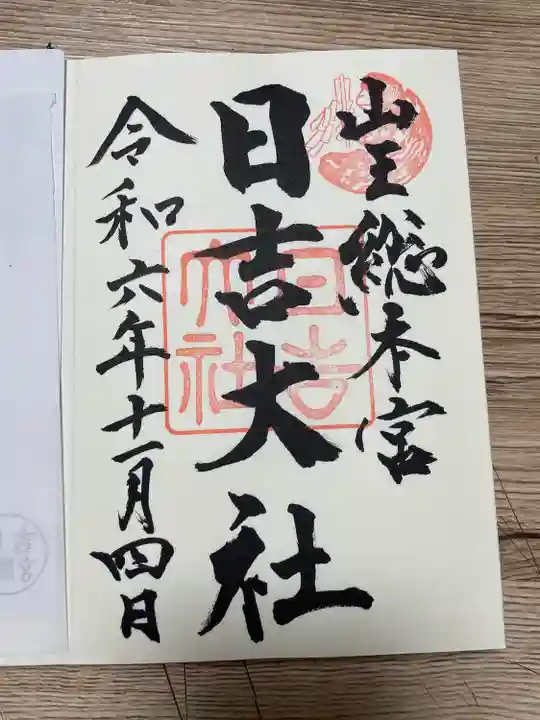 山王総本宮
日吉大社
令和六年十一月四日
日吉
大社